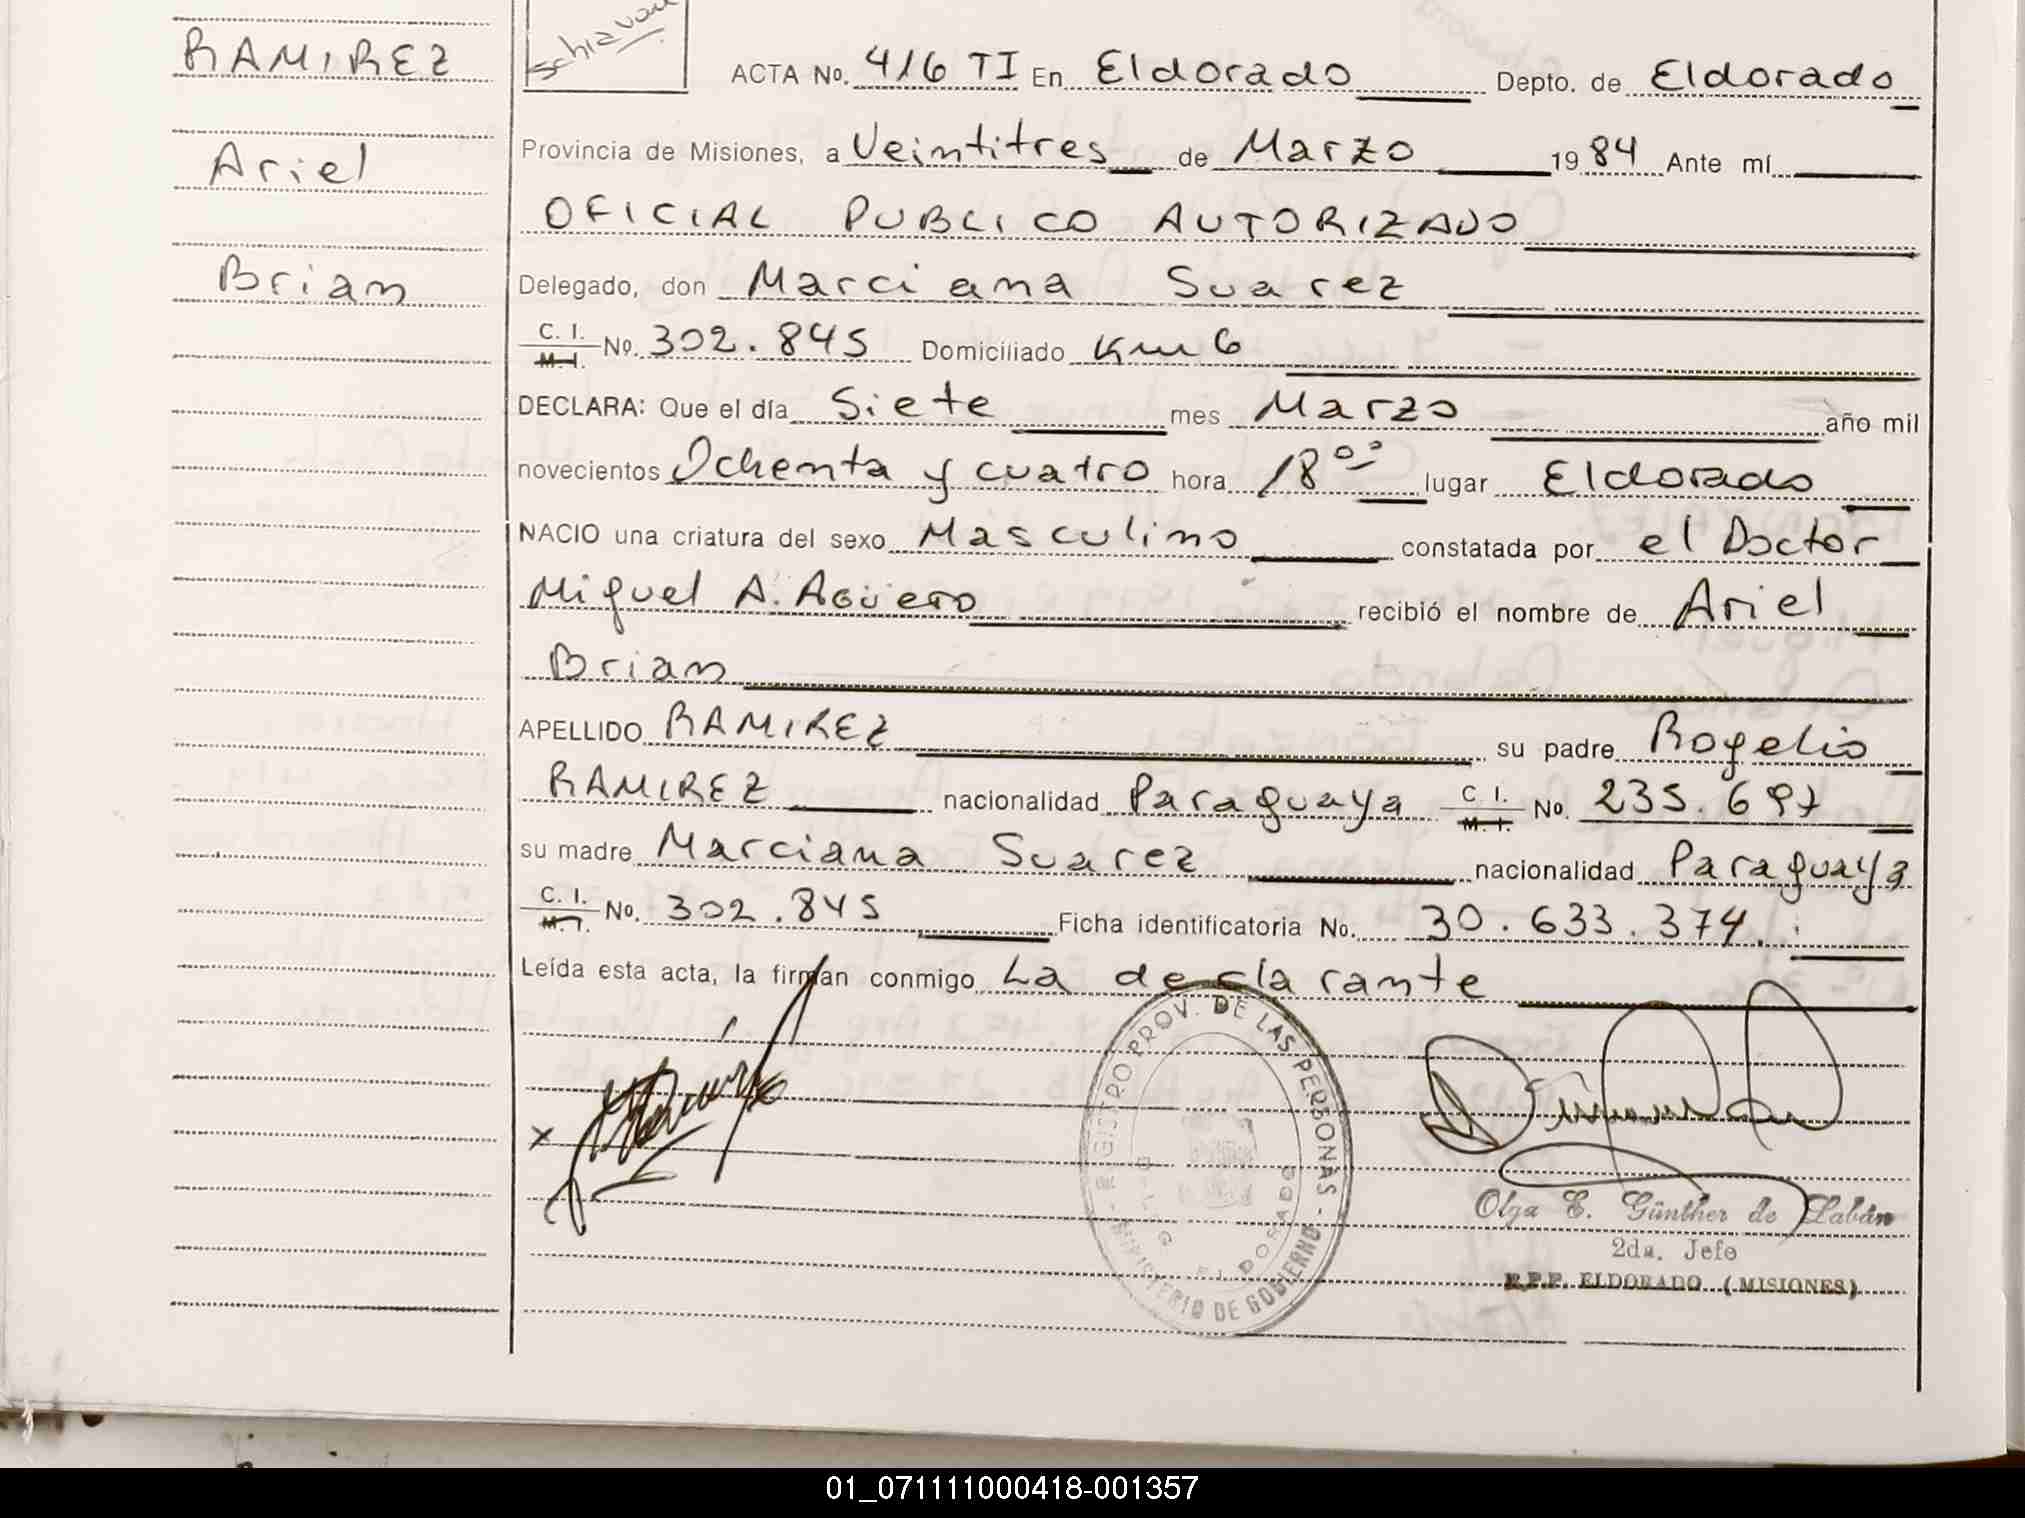 Schiavon
RAMIREZ
Ariel
Brian
ACTA No. 416 TI En Eldorado Depto. de Eldorado
Provincia de Misiones, a Veintitres de Marzo 1984 Ante mí
OFICIAL PUBLICO AUTORIZADO
Delegado, don Marciana Suarez
C. I. M. I. No. 302.845 Domiciliado Km 6
DECLARA: Que el día Siete mes Marzo año mil
novecientos Ochenta y cuatro hora 18 00 lugar Eldorado
NACIO una criatura del sexo Masculino constatada por el Doctor
Miguel A. Agüero recibió el nombre de Ariel
Brian
APELLIDO RAMIREZ su padre Rogelio
RAMIREZ nacionalidad Paraguaya C I. M. I. No. 235.697
su madre Marciana Suarez nacionalidad Paraguaya
C. I. M. I. No. 302.845 Ficha identificatoria No. 30.633.374.
Leída esta acta, la firman conmigo La declarante
x
REGISTRO PROV. DE LAS PERSONAS - MINISTERIO DE GOBIERNO -
ELDORADO
Olga E. Günther de Labán
2da. Jefe
R.P.P. ELDORADO (MISIONES)
01_071111000418-001357